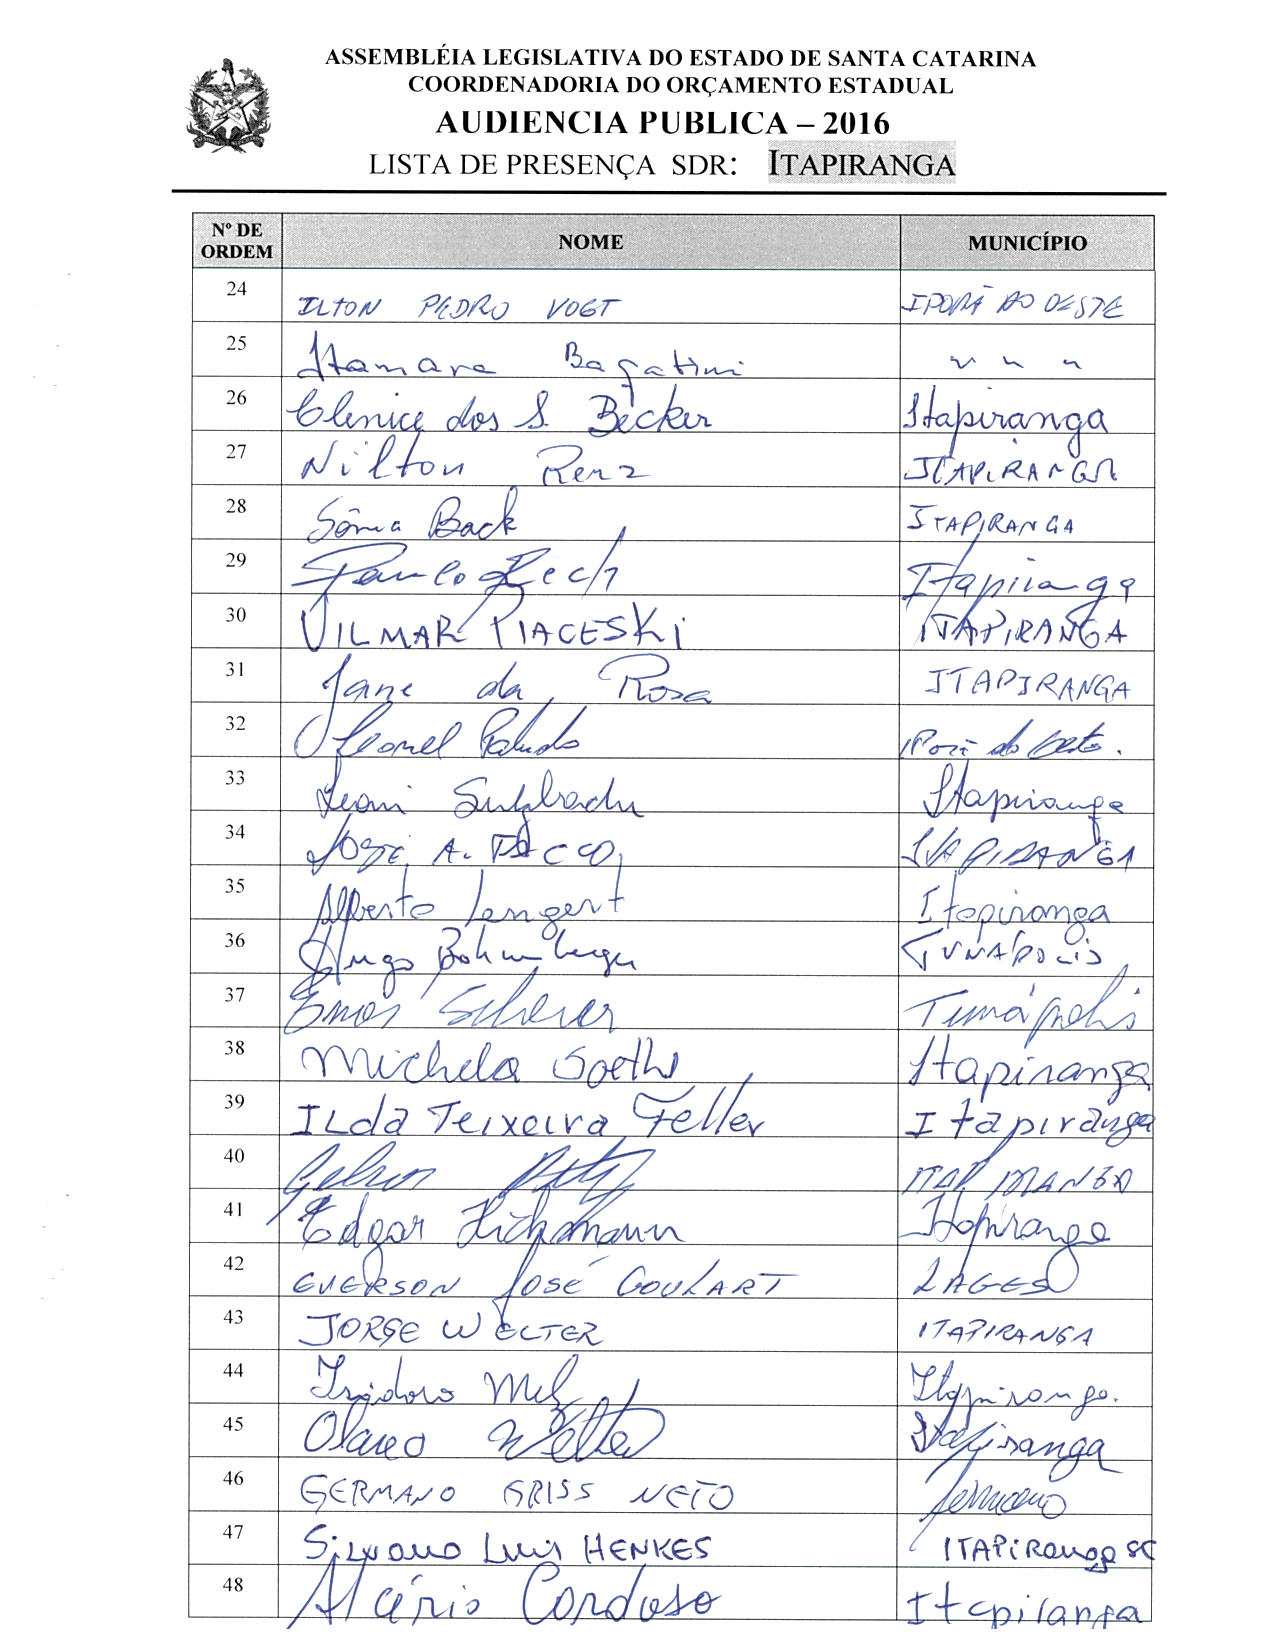 ASSEMBLÉIA LEGISLATIVA DO ESTADO DE SANTA CATARINA
COORDENADORIA DO ORÇAMENTO ESTADUAL
AUDIENCIA PUBLICA – 2016
LISTA DE PRESENÇA SDR: ITAPIRANGA
Nº DE ORDEM NOME MUNICÍPIO
24 ILTON PEDRO VOGT IPORÃ DO OESTE
25 Itamara Bagatini " " "
26 Clenice dos S. Becker Itapiranga
27 Nilton Renz ITAPIRANGA
28 Sônia Back ITAPIRANGA
29 Paulo Rech Itapiranga
30 VILMAR PIACESKi ITAPIRANGA
31 Jane da Rosa ITAPIRANGA
32 Leonel Paludo IPorã do Oeste.
33 Leani Sulzbach Itapiranga
34 JOSÉ A. ITAPIRANGA
35 Alberto Lengert Itapiranga
36 Hugo TUNÁPOLIS
37 Enos Scherer Tunápolis
38 Michela Goethe Itapiranga
39 ILda Teixeira Feller Itapiranga
40 Gelson ITAPIRANGA
41 Edgar Itapiranga
42 EVERSON JOSÉ GOULART LAGES
43 JORGE WELTER ITAPIRANGA
44 Isidoro Itapiranga.
45 Olavo Welter Itapiranga
46 GERMANO GRISS NETO Germano
47 Silvano Luis HENKES ITAPIRanga SC
48 Alcério Cardoso Itapiranga